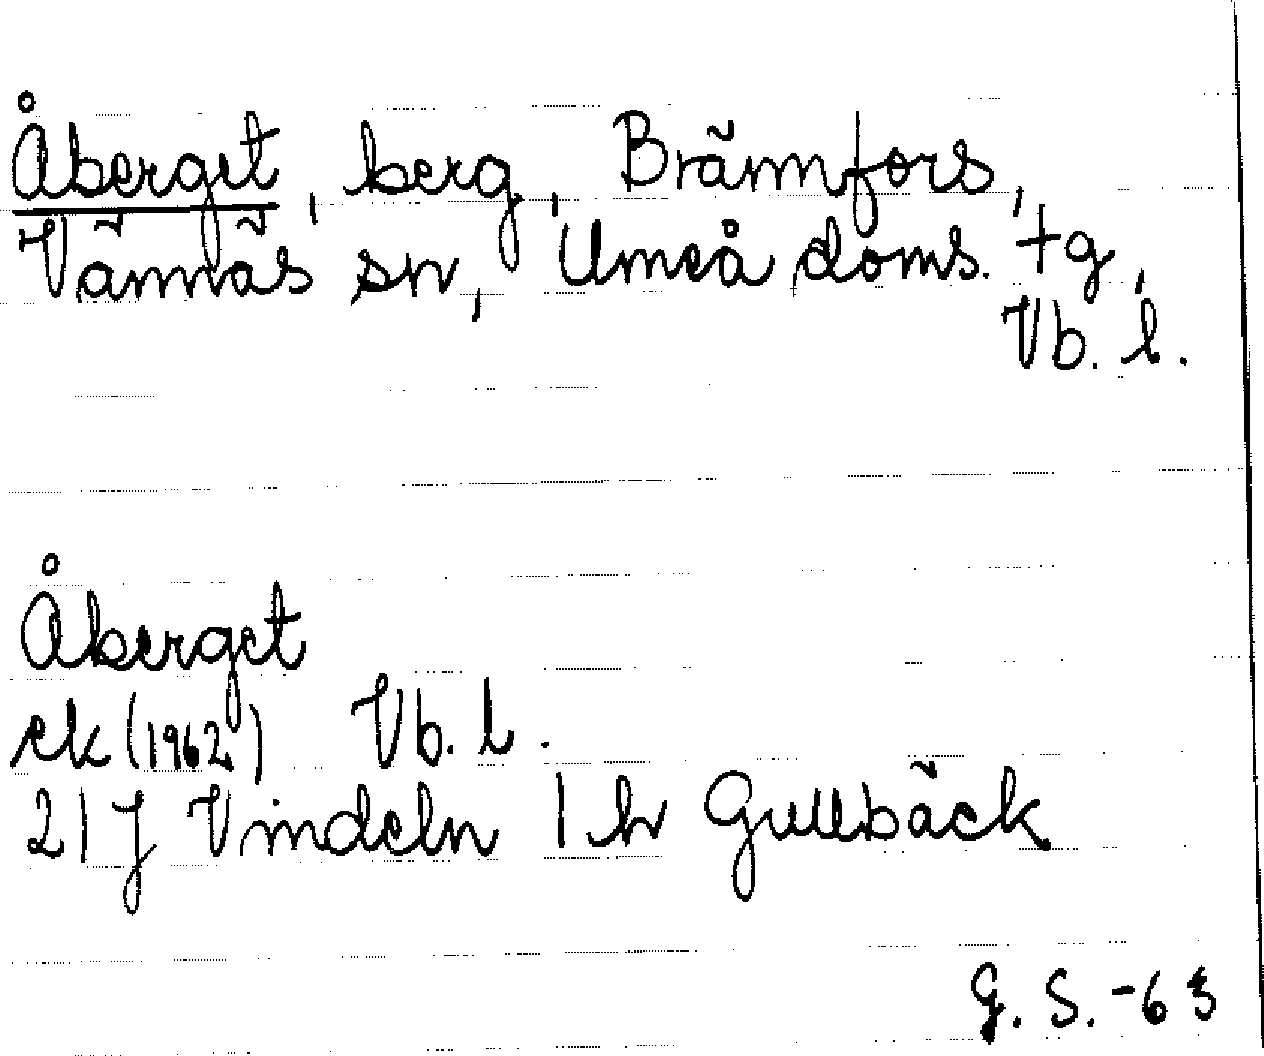 Åberget, berg, Brännfors,
Vännäs sn, Umeå doms. tg,
Vb. l.
Åberget
ek (1962) Vb. l.
21 J Vindeln 1 h Gullbäck
G. S. -63